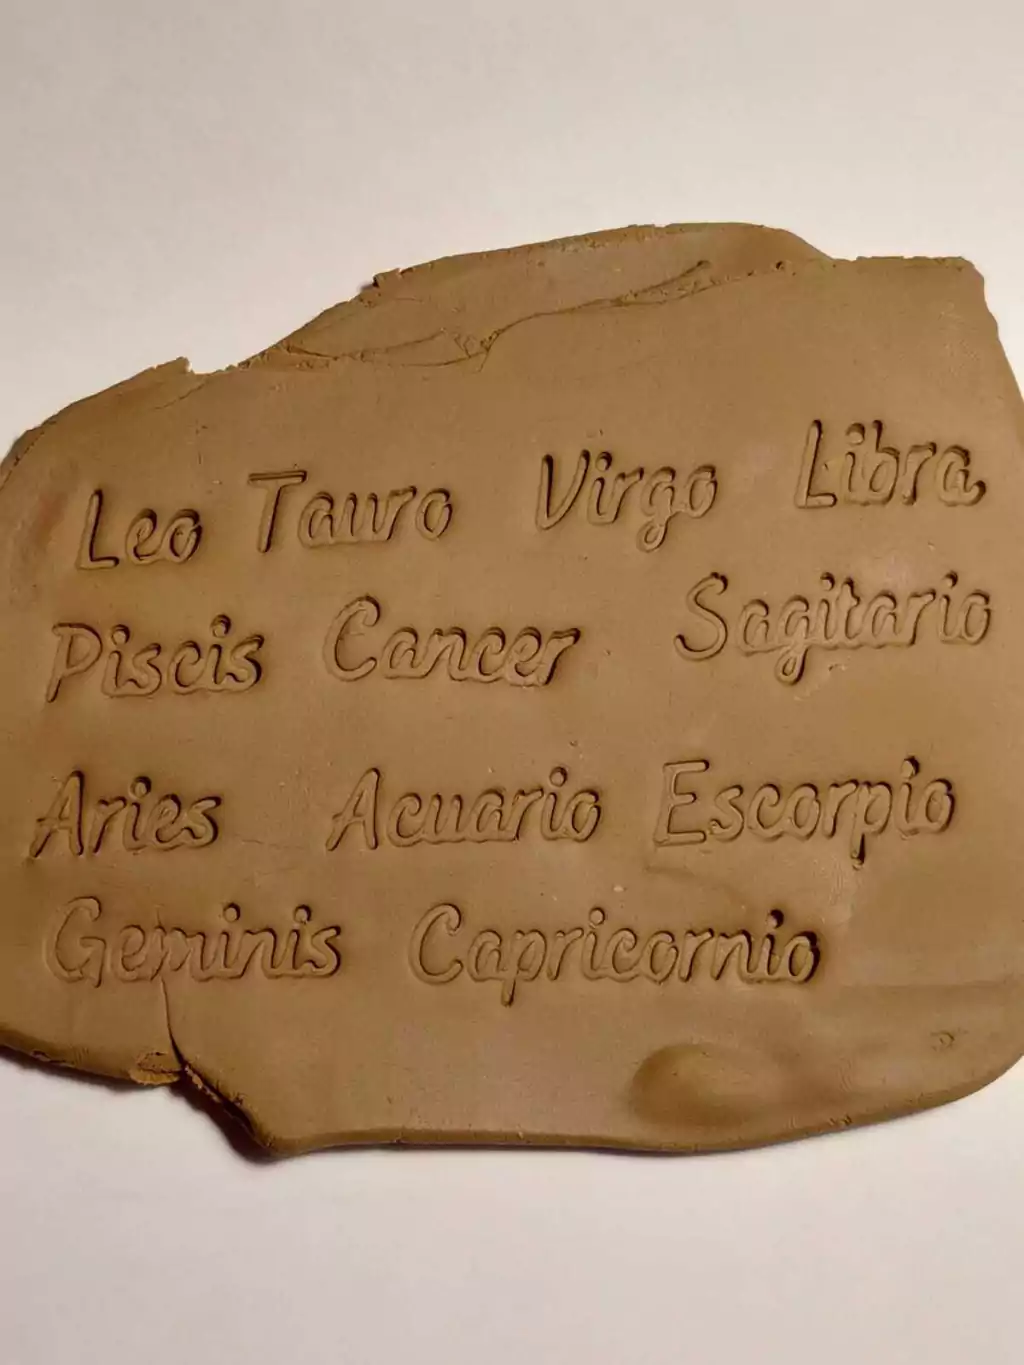 Leo Tauro Virgo Libra
Piscis Cancer Sagitario
Aries Acuario Escorpio
Geminis Capricornio